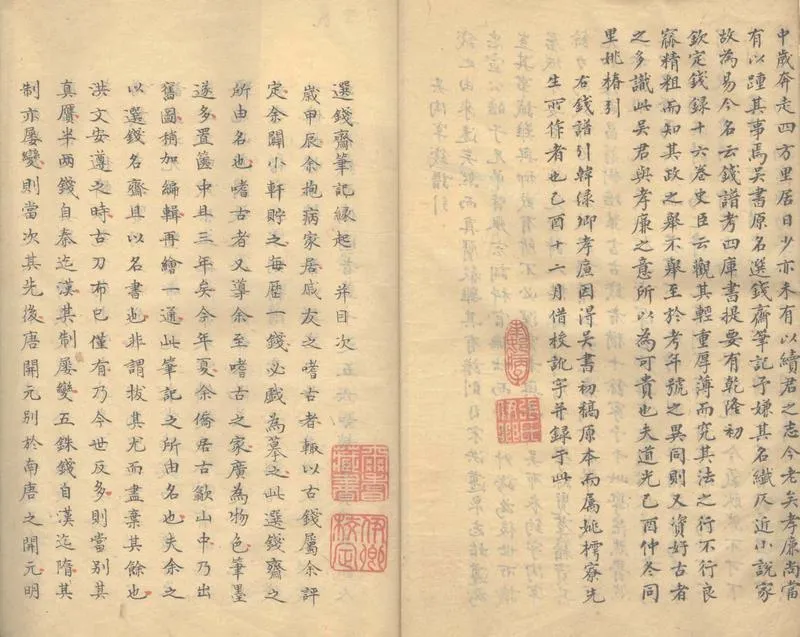 中歲奔走四方里居日少亦未有以續君之志今老矣孝廉尚當
有以踵其事焉吳書原名選錢齋筆記予嫌其名纖仄近小說家
故為易今名云錢譜考四庫書提要有乾隆初
欽定錢錄十六卷史臣云觀其輕重厚薄而究其法之行不行良
窳精粗而知其政之舉不舉至於考年號之異同則又資好古者
之多識此吳君與孝廉之意所以為可貴也夫道光己酉仲冬同
里姚椿引
右錢譜引韓綠卿孝廉因得吳書初稿原本而屬姚樗寮先
生所作者也己酉十二月借校訛字并錄于此
選錢齋筆記緣起 并目次
歲甲辰余抱病家居戚友之嗜古者輒以古錢屬余評
定余闢小軒貯之每歷一錢必戲為摹之此選錢齋之
所由名也嗜古者又導余至嗜古之家廣為物色筆墨
遂多置篋中且三年矣今年夏余僑居古歙山中乃出
舊圖稍加編輯再繪一通此筆記之所由名也夫余之
以選錢名齋且以名書也非謂拔其尤而盡棄其餘也
洪文安遵之時古刀布已僅有乃今世反多則當別其
真贗半兩錢自秦迄漢其制屢變五銖錢自漢迄隋其
制亦屢變則當次其先後唐開元別於南唐之開元明
藏書
伊卿校定